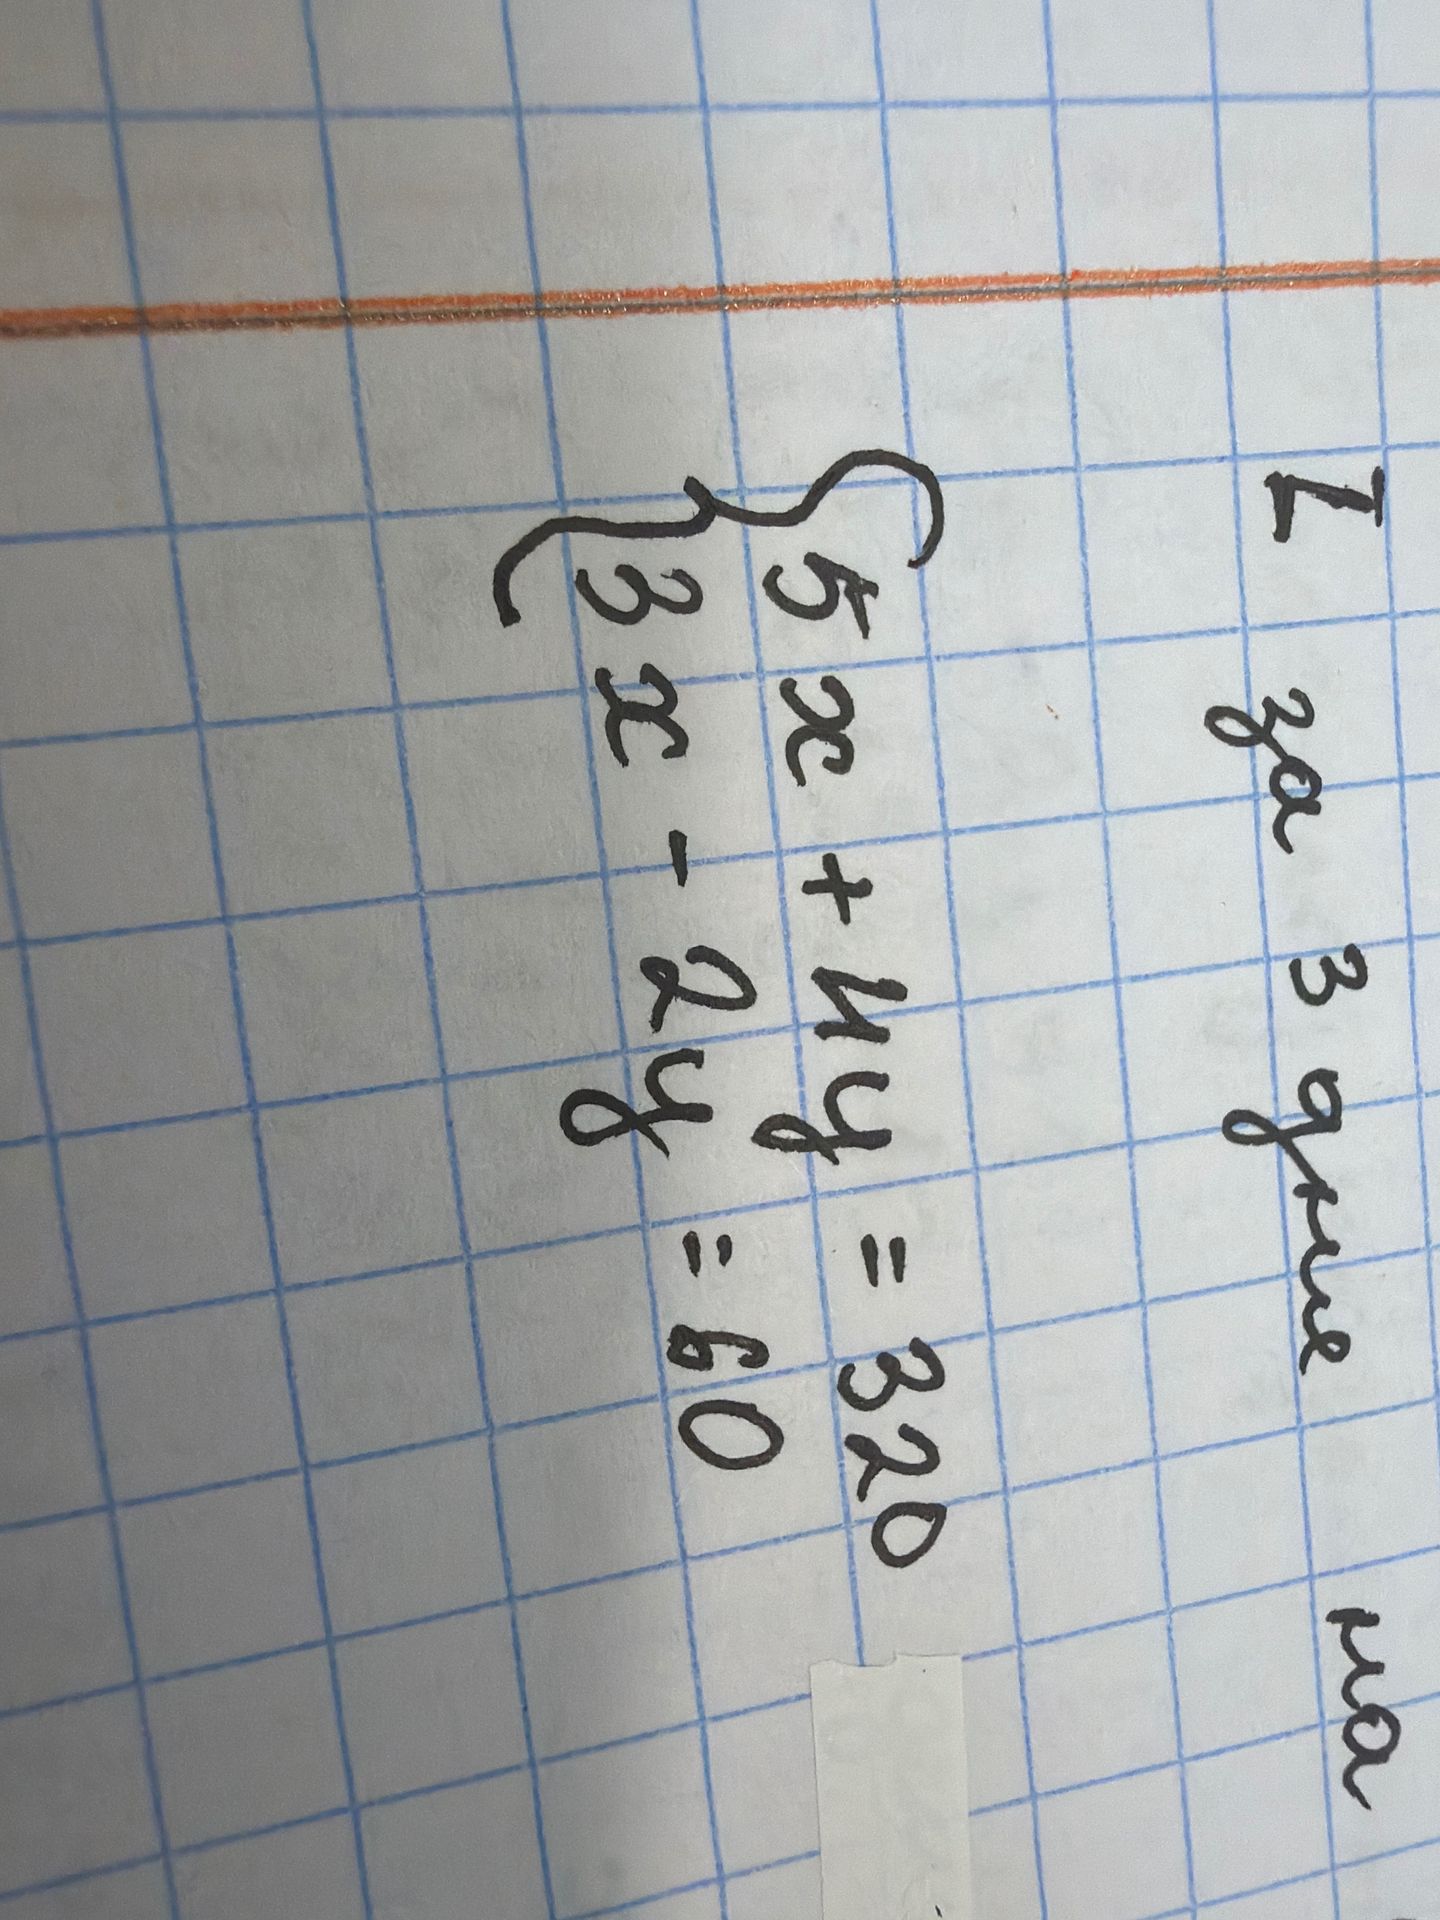 I за 3 дние на
5x + 4y = 320
3x - 2y = 60